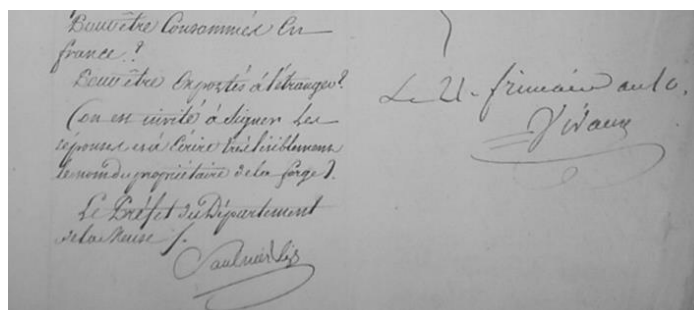 Pour être Consommés En
france ?
Pour être Exportés à l'étranger ?
(on est invité à Signer Les
réponses et à Ecrire très lisiblement
le nom du propriétaire de la forge).
Le Préfet du Département
de la Meuse /.
Saulnier
Le 21 frimaire an 10.
Vivaux